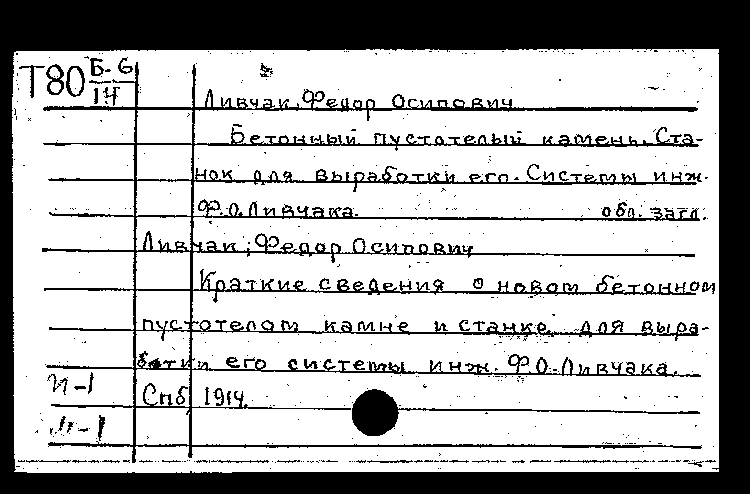 Т80 Б-6
14
Ливчак, Федор Осипович
Бетонный пустотелый камень. Ста-
нок для выработки его. Системы инж.
Ф.О. Ливчака. обл. загл.
Ливчак, Федор Осипович
Краткие сведения о новом бетонном
пустотелом камне и станке для выра-
ботки его системы инж. Ф.О. Ливчака.
И-1
Спб, 1914.